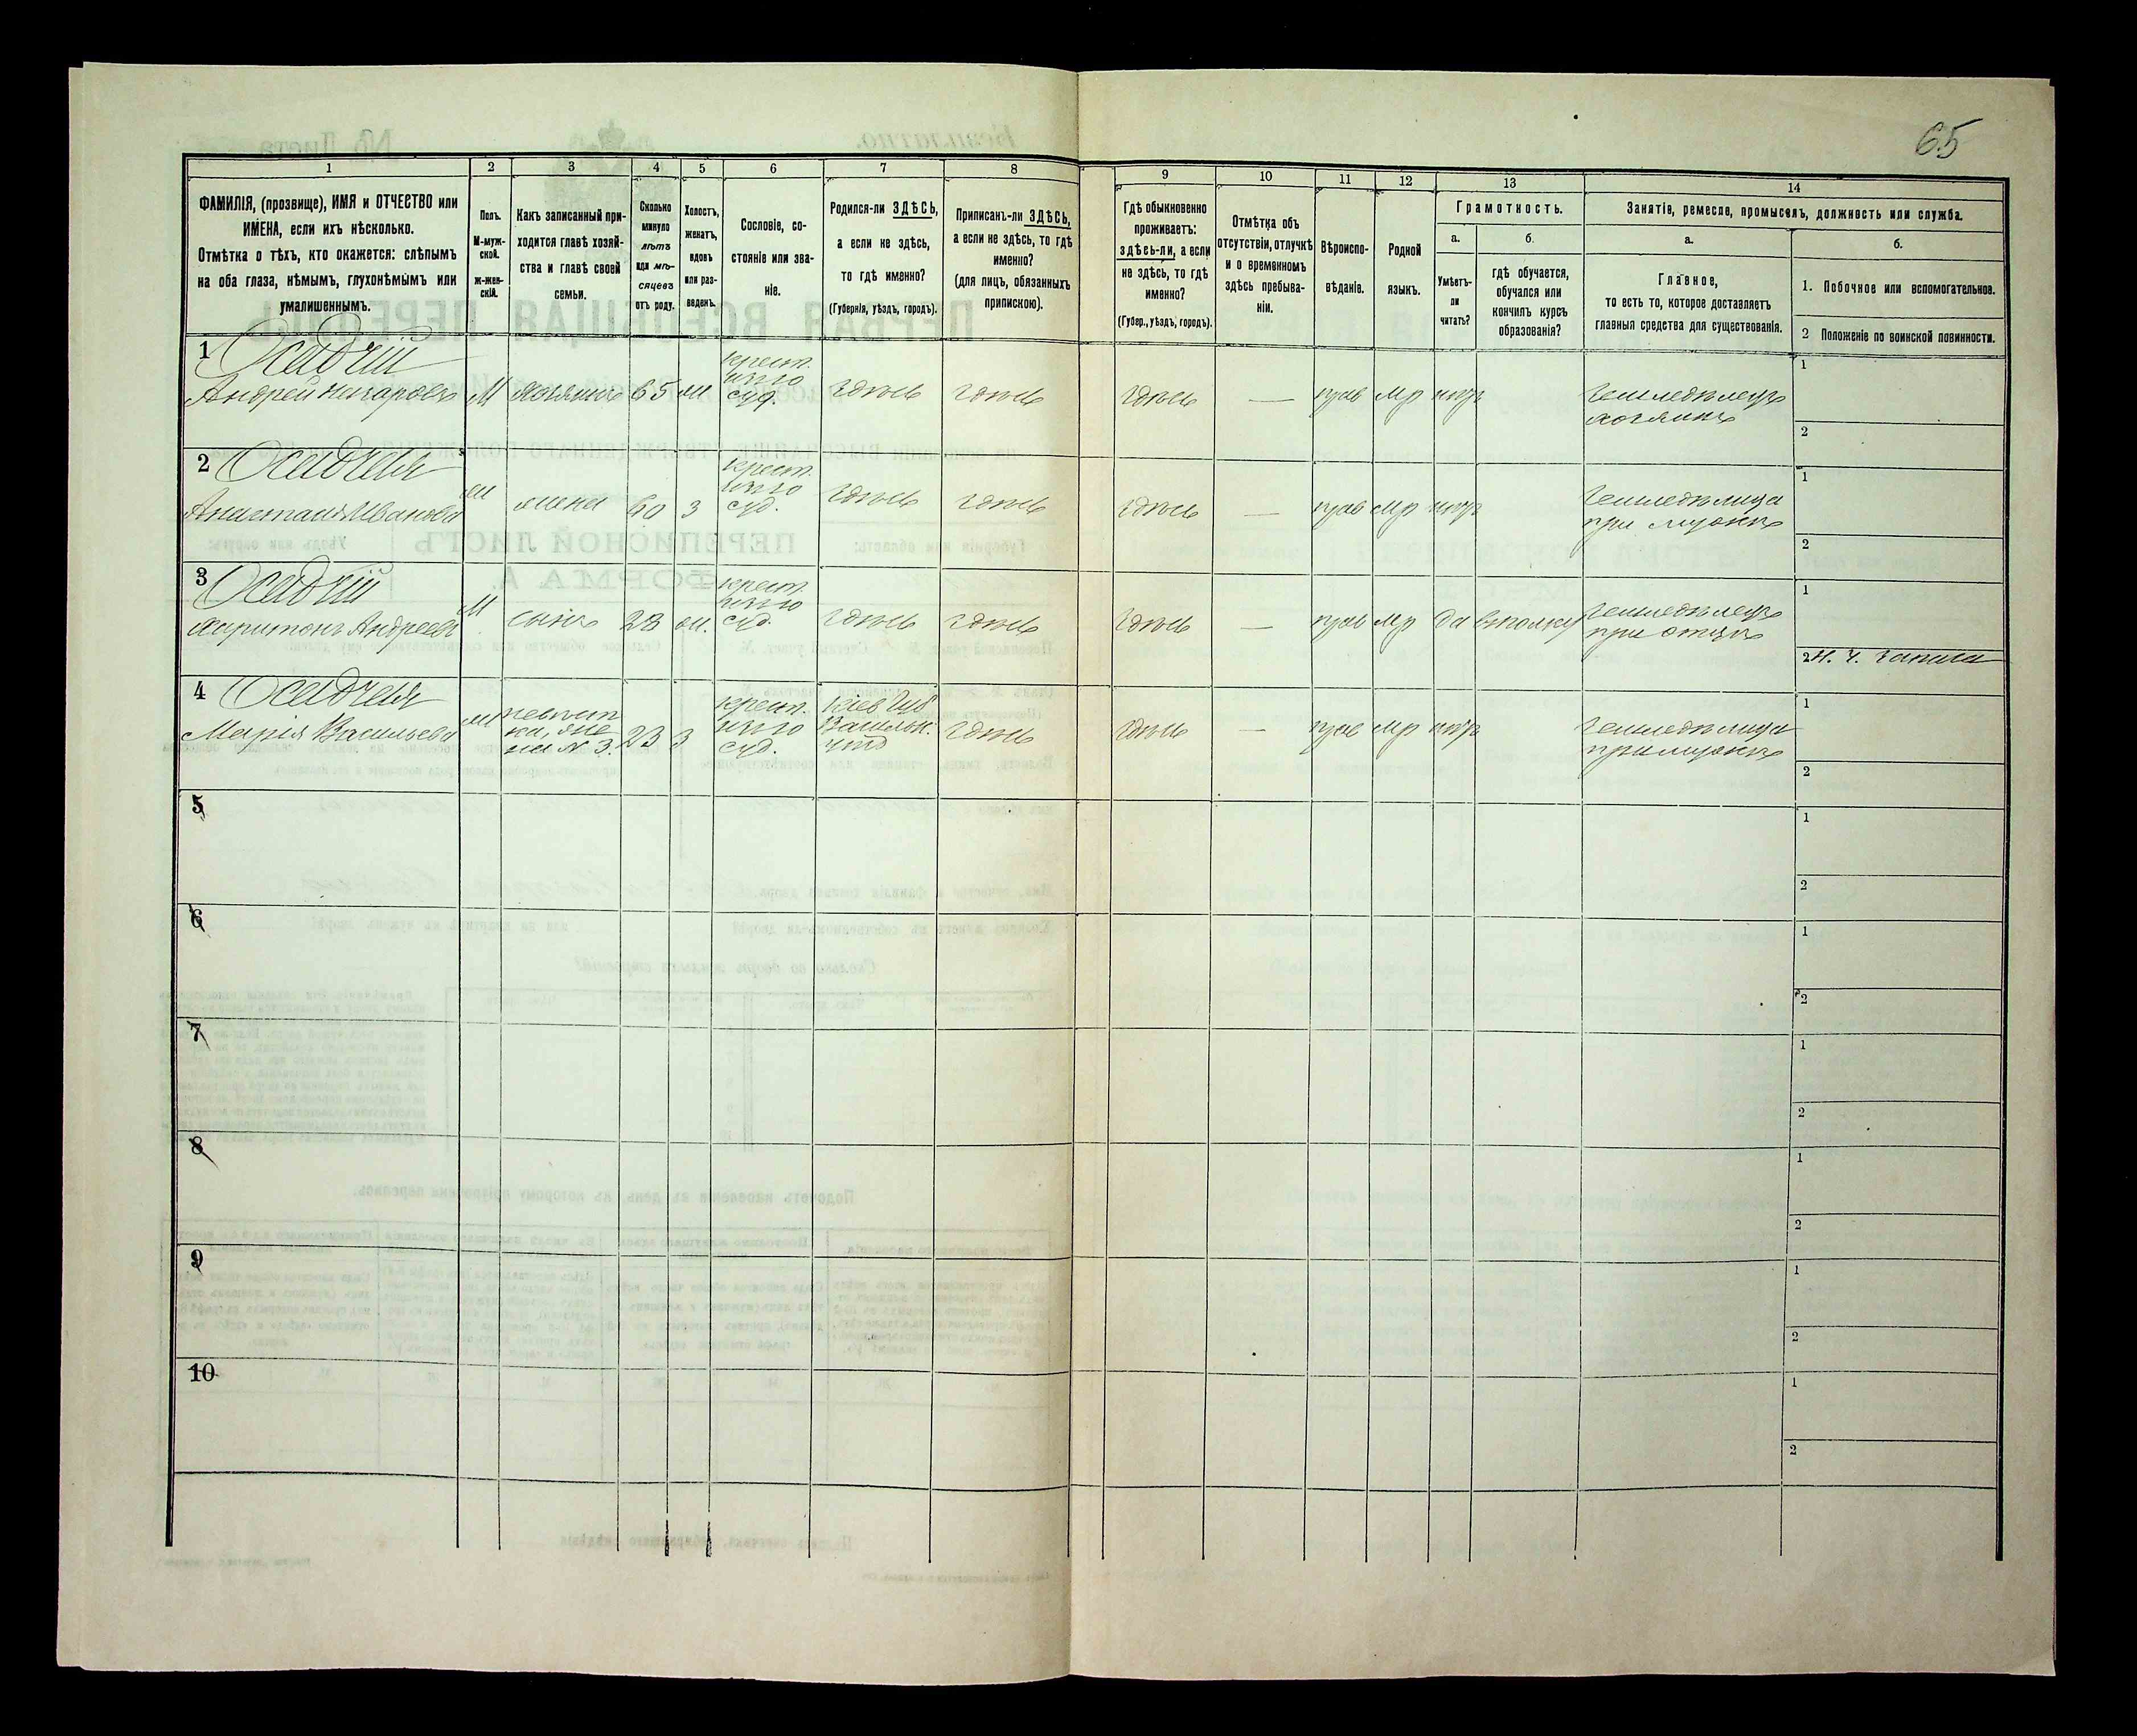 65
1 2 3 4 5 6 7 8 9 10 11 12 13 14
ФАМИЛІЯ, (прозвище), ИМЯ и ОТЧЕСТВО или
ИМЕНА, если ихъ нѣсколько.
Отмѣтка о тѣхъ, кто окажется: слѣпымъ
на оба глаза, нѣмымъ, глухонѣмымъ или
умалишеннымъ.
Полъ.
М-муж-
ской.
ж-жен-
скій.
Какъ записанный при-
ходится главѣ хозяй-
ства и главѣ своей
семьи.
Сколько
минуло
лѣтъ
или мѣ-
сяцевъ
отъ роду.
Холостъ,
женатъ,
вдовъ
или раз-
веденъ.
Сословіе, со-
стояніе или зва-
ніе.
Родился-ли ЗДѢСЬ,
а если не здѣсь,
то гдѣ именно?
(Губернія, уѣздъ, городъ).
Приписанъ-ли ЗДѢСЬ,
а если не здѣсь, то гдѣ
именно?
(для лицъ, обязанныхъ
припискою).
Гдѣ обыкновенно
проживаетъ:
здѣсь-ли, а если
не здѣсь, то гдѣ
именно?
(Губер., уѣздъ, городъ).
Отмѣтка объ
отсутствіи, отлучкѣ
и о временномъ
здѣсь пребыва-
ніи.
Вѣроиспо-
вѣданіе.
Родной
языкъ.
Грамотность.
а.
Умѣетъ-
ли
читать?
б.
гдѣ обучается,
обучался или
кончилъ курсъ
образованія?
Занятіе, ремесло, промыселъ, должность или служба.
а.
Главное,
то есть то, которое доставляетъ
главныя средства для существованія.
б.
1. Побочное или вспомогательное.
2 Положеніе по воинской повинности.
1 Осадчій
Андрей М хозяинъ 65 ж крест. здѣсь здѣсь здѣсь — прав мр нѣтъ земледѣлецъ
хозяинъ
1
2
2 Осадчая
Анастасія Иванова ж жена 60 з крест. здѣсь здѣсь здѣсь — прав мр нѣтъ земледѣлица
при мужѣ
1
2
3 Осадчій
Харитонъ Андреевъ М сынъ 28 ж. крест. здѣсь здѣсь здѣсь — прав мр да въ полку земледѣлецъ
при отцѣ
1
2 Н. Ч. запаса
4 Осадчая
Марія Васильева ж невѣст
ка, же
на N 3. 23 з крест. Кіев Губ
Васильк.
уѣзд здѣсь здѣсь — прав мр нѣтъ земледѣлица
при мужѣ
1
2
5
1
2
6
1
2
7
1
2
8
1
2
9
1
2
10
1
2